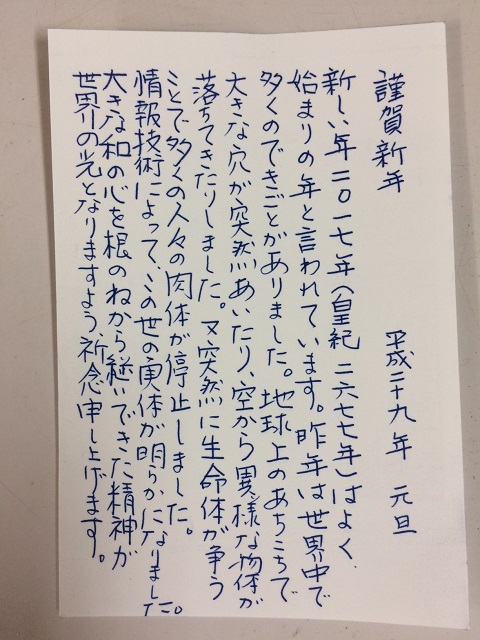 謹賀新年
平成二十九年 元旦
新しい年二〇一七年(皇紀 二六七七年)はよく
始まりの年と言われています。昨年は世界中で
多くのできごとがありました。地球上のあちこちで
大きな穴が突然あいたり、空から異様な物体が
落ちてきたりしました。又突然に生命体が争う
ことで多くの人々の肉体が停止しました。
情報技術によって、この世の実体が明らかになりました。
大きな和の心を根のねから継いできた精神が
世界の光となりますよう、祈念申し上げます。